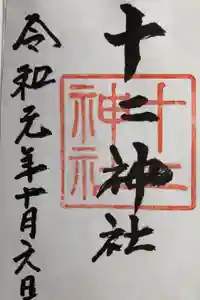 十二神社
十二
神社
令和元年十月六日